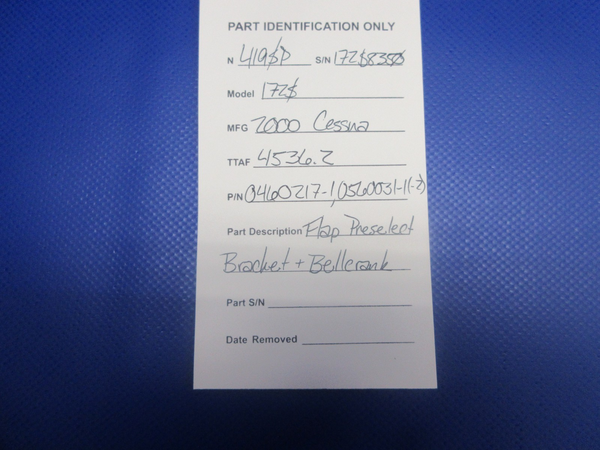 PART IDENTIFICATION ONLY
N 419SP S/N 172S8350
Model 172S
MFG 2000 Cessna
TTAF 4536.2
P/N 0460217-1, 0560031-1(-2)
Part Description Flap Preselect
Bracket + Bellcrank
Part S/N
Date Removed